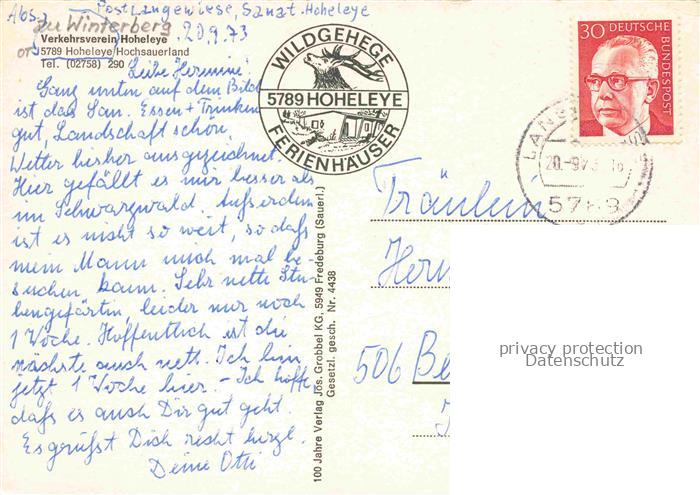 Abs.: Post Langewiese, Sanat. Hoheleye
zu Winterberg
20.9.73
Verkehrsverein Hoheleye
5789 Hoheleye/Hochsauerland
Tel. (02758) 290
Liebe Hermine!
Ganz unten auf dem Bild
ist das San. Essen + Trinken
gut, Landschaft schön,
Wetter bisher ausgezeichnet.
Hier gefällt es mir besser als
im Schwarzwald. Außerdem
ist es nicht so weit, so daß
mein Mann mich mal be-
suchen kann. Sehr nette Stu-
bengefärtin, leider nur noch
1 Woche. Hoffentlich ist die
nächste auch nett. Ich bin
jetzt 1 Woche hier. - Ich hoffe
daß es auch Dir gut geht.
Es grüßt Dich recht herzl.
Deine Otti
WILDGEHEGE
5789 HOHELEYE
FERIENHÄUSER
100 Jahre Verlag Jos. Grobbel KG, 5949 Fredeburg (Sauerl.)
Gesetzl. gesch. Nr. 4438
30 DEUTSCHE
BUNDESPOST
20.-9.73
Fräulein
Herm
506 Be
privacy protection
Datenschutz